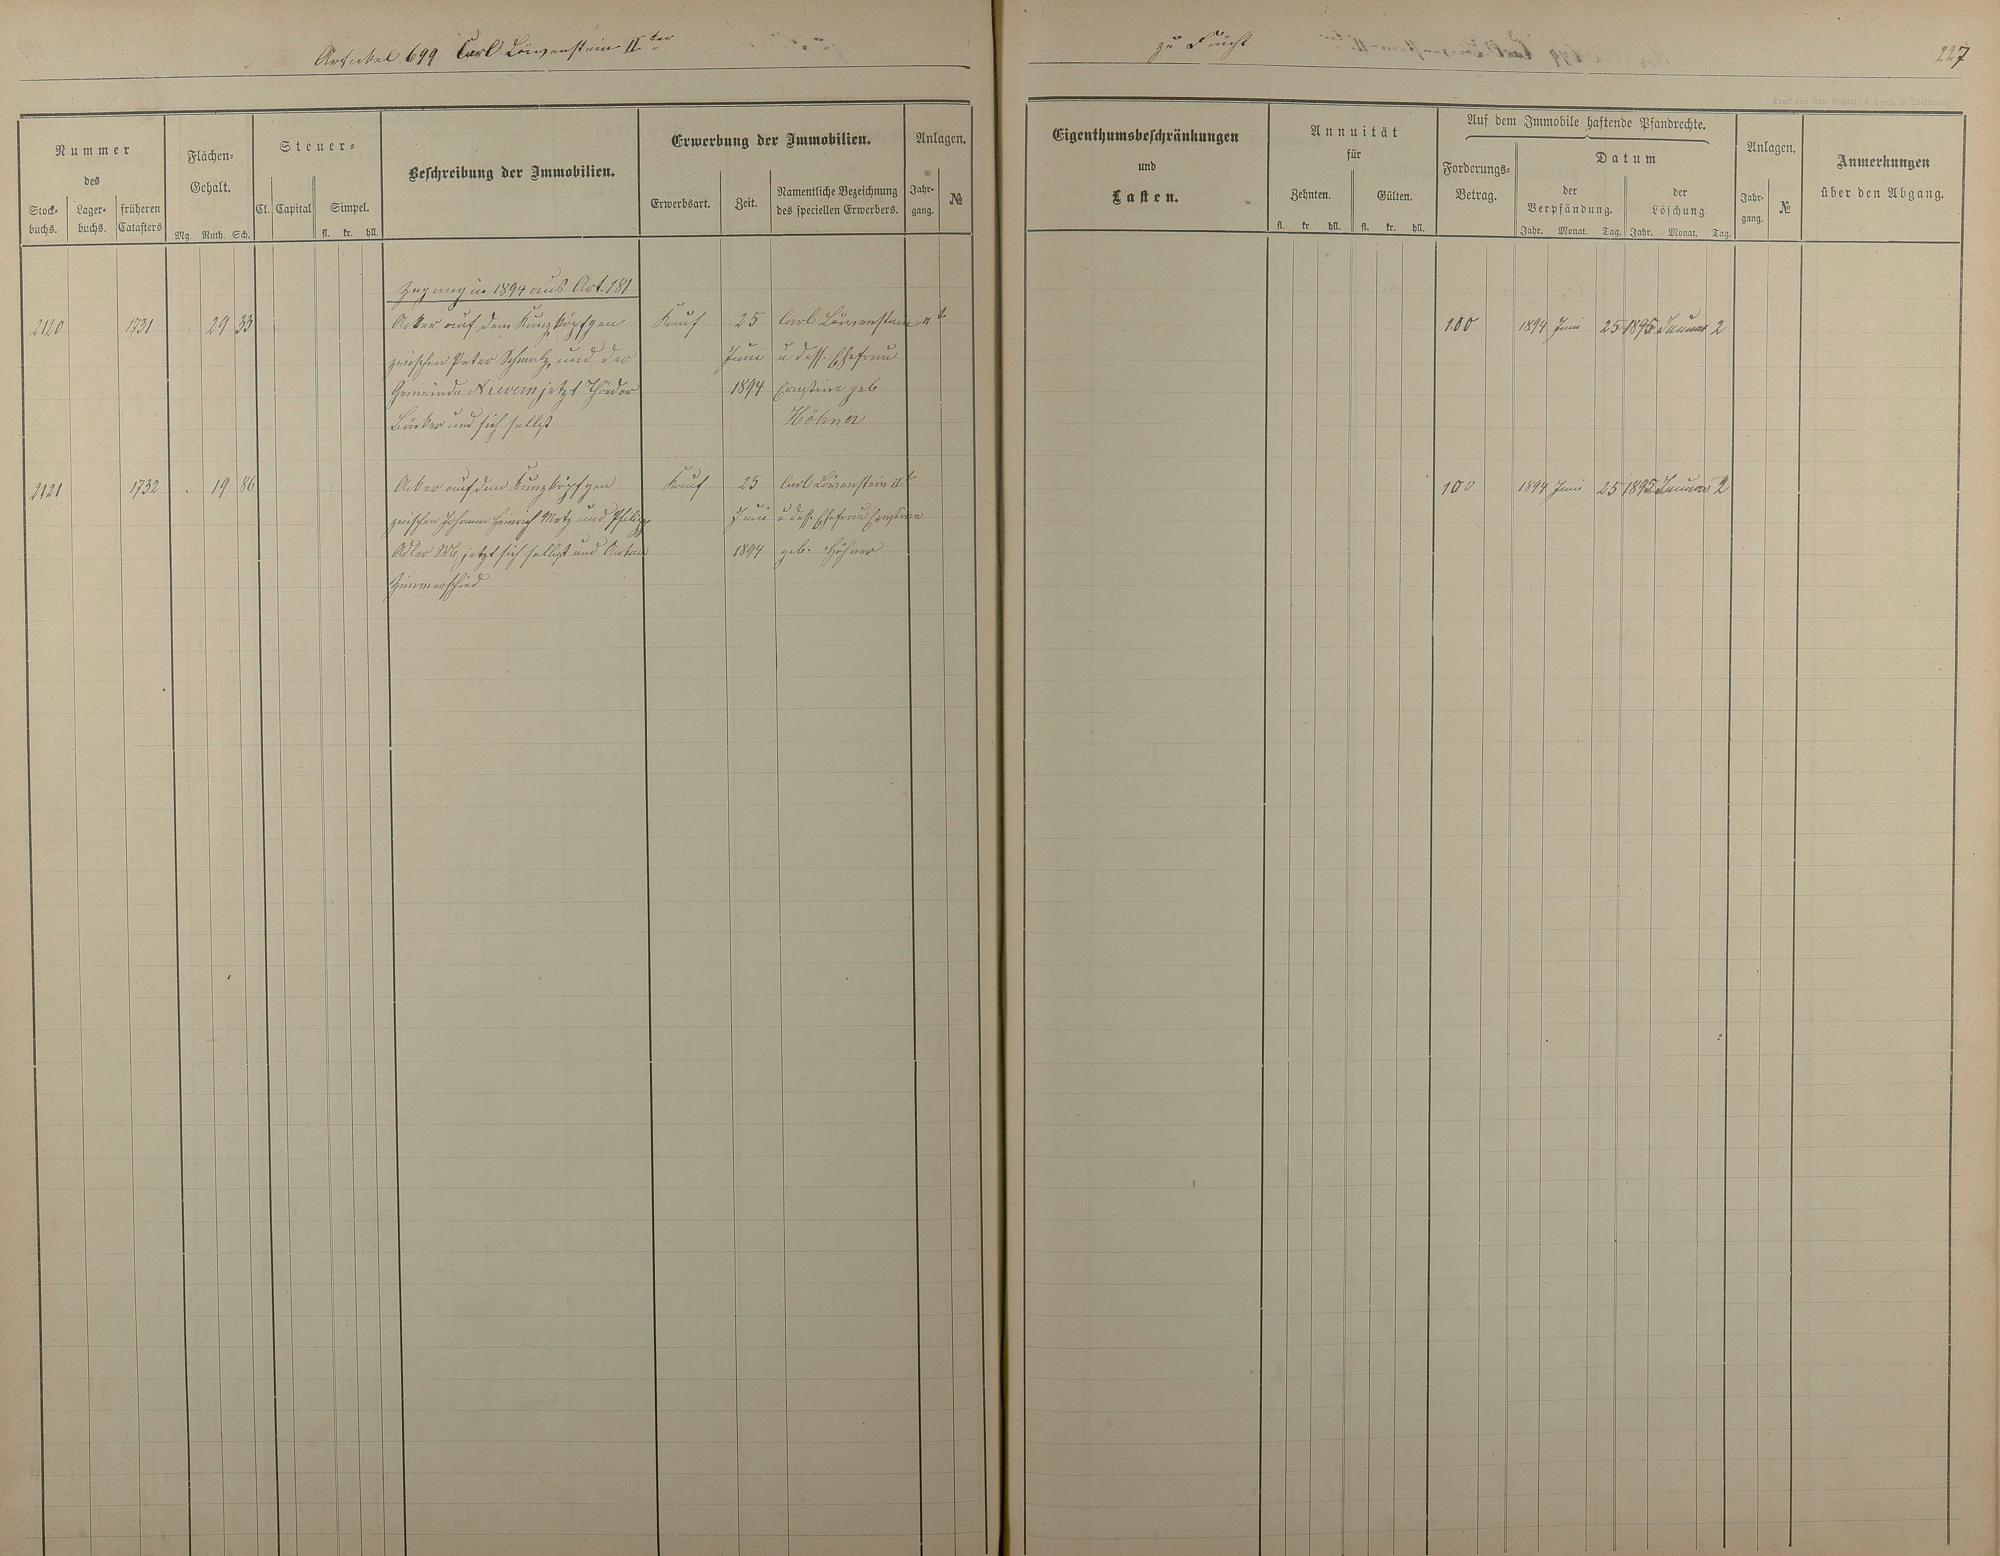 Artickel 699 Carl Löwenstein II ter
zu Frücht
227
Druck von Rud. Bechtold & Comp. in Wiesbaden.
Nummer
des
Stock-
buchs.
Lager-
buchs.
früheren
Catasters
Flächen-
Gehalt.
Mg. Ruth. Sch.
Steuer-
Cl. Capital Simpel.
fl. kr. hll.
Beschreibung der Immobilien.
Erwerbung der Immobilien.
Erwerbsart. Zeit.
Namentliche Bezeichnung
des speciellen Erwerbers.
Anlagen.
Jahr-
gang.
№
Eigenthumsbeschränkungen
und
Lasten.
Annuität
für
Zehnten. Gülten.
fl. kr. hll. fl. kr. hll.
Auf dem Immobile haftende Pfandrechte.
Forderungs-
Betrag.
Datum
der
Verpfändung.
der
Löschung
Jahr. Monat. Tag. Jahr. Monat. Tag.
Anlagen.
Jahr-
gang.
№
Anmerkungen
über den Abgang.
Zugang in 1894 aus Art. 181
2120 1731 29 33 Acker auf dem Kunzköpfgen Kauf 25 Carl Löwenstein II t 100 1894 Juni 25 1895 Januar 2
zwischen Peter Schmalz und der Juni u dess. Ehefrau
Gemeinde Nievern jetzt 1894 Ernstine geb
und sich selbst Höhner
2121 1732 19 86 Acker auf dem Kunzköpfgen Kauf 25 Carl Löwenstein II t 100 1894 Juni 25 1895 Januar 2
zwischen Johann Heinrich Metz und Philipp Juni u dess. Ehefrau Ernstine
Adler jetzt sich selbst und Anton 1894 geb. Höhner
Zimmerschied